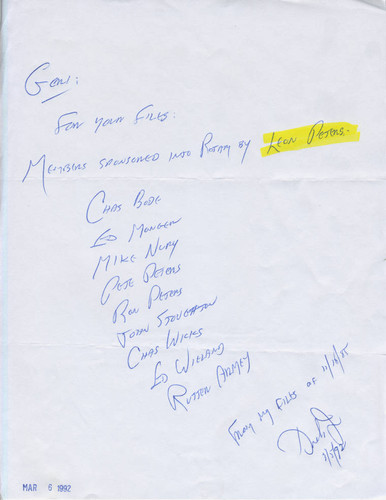 Geri:
For your files:
Members sponsored into Rotary by Leon Peters.
Chas Bode
Ed Monger
Mike Nury
Pete Peters
Ron Peters
John Stoughton
Chas Wicks
Ed Wieland
Rutter Armey
From my files of 11/18/85
3/5/92
MAR 6 1992